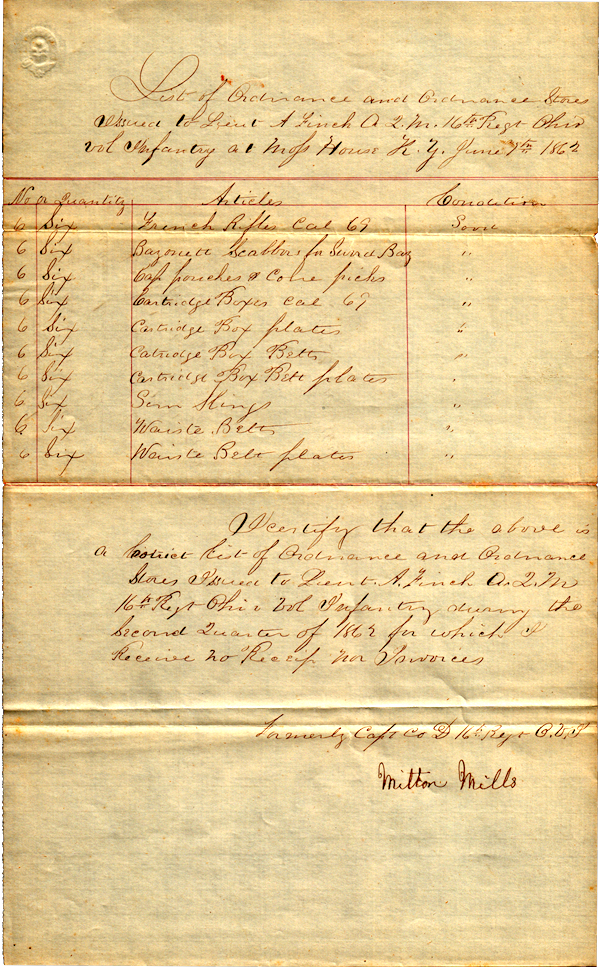 List of Ordnance and Ordnance Stores
Issued to Lieut A Finch A. Q. M. 16th Regt Ohio
vol Infantry at Moss House K. Y. June 7th 1862
No or Quantity Articles Condition
6 Six French Rifles Cal 69 Good
6 Six Bayonett Scabbors for Sword Bay "
6 Six Cap pouches & Cone picks "
6 Six Cartridge Boxes Cal 69 "
6 Six Cartridge Box plates "
6 Six Catridge Box Belts "
6 Six Cartridge Box Belt plates "
6 Six Gun Slings "
6 Six Waiste Belts "
6 Six Waiste Belt plates "
I certify that the above is
a List of Ordnance and Ordnance
Stores Issued to Lieut. A. Finch A. Q. M
16th Regt Ohio Vol Infantry during the
Second Quarter of 1862 for which I
Receive no Receip nor Invoices
Formerly Capt Co D 16th Regt O. V. I
Milton Mills